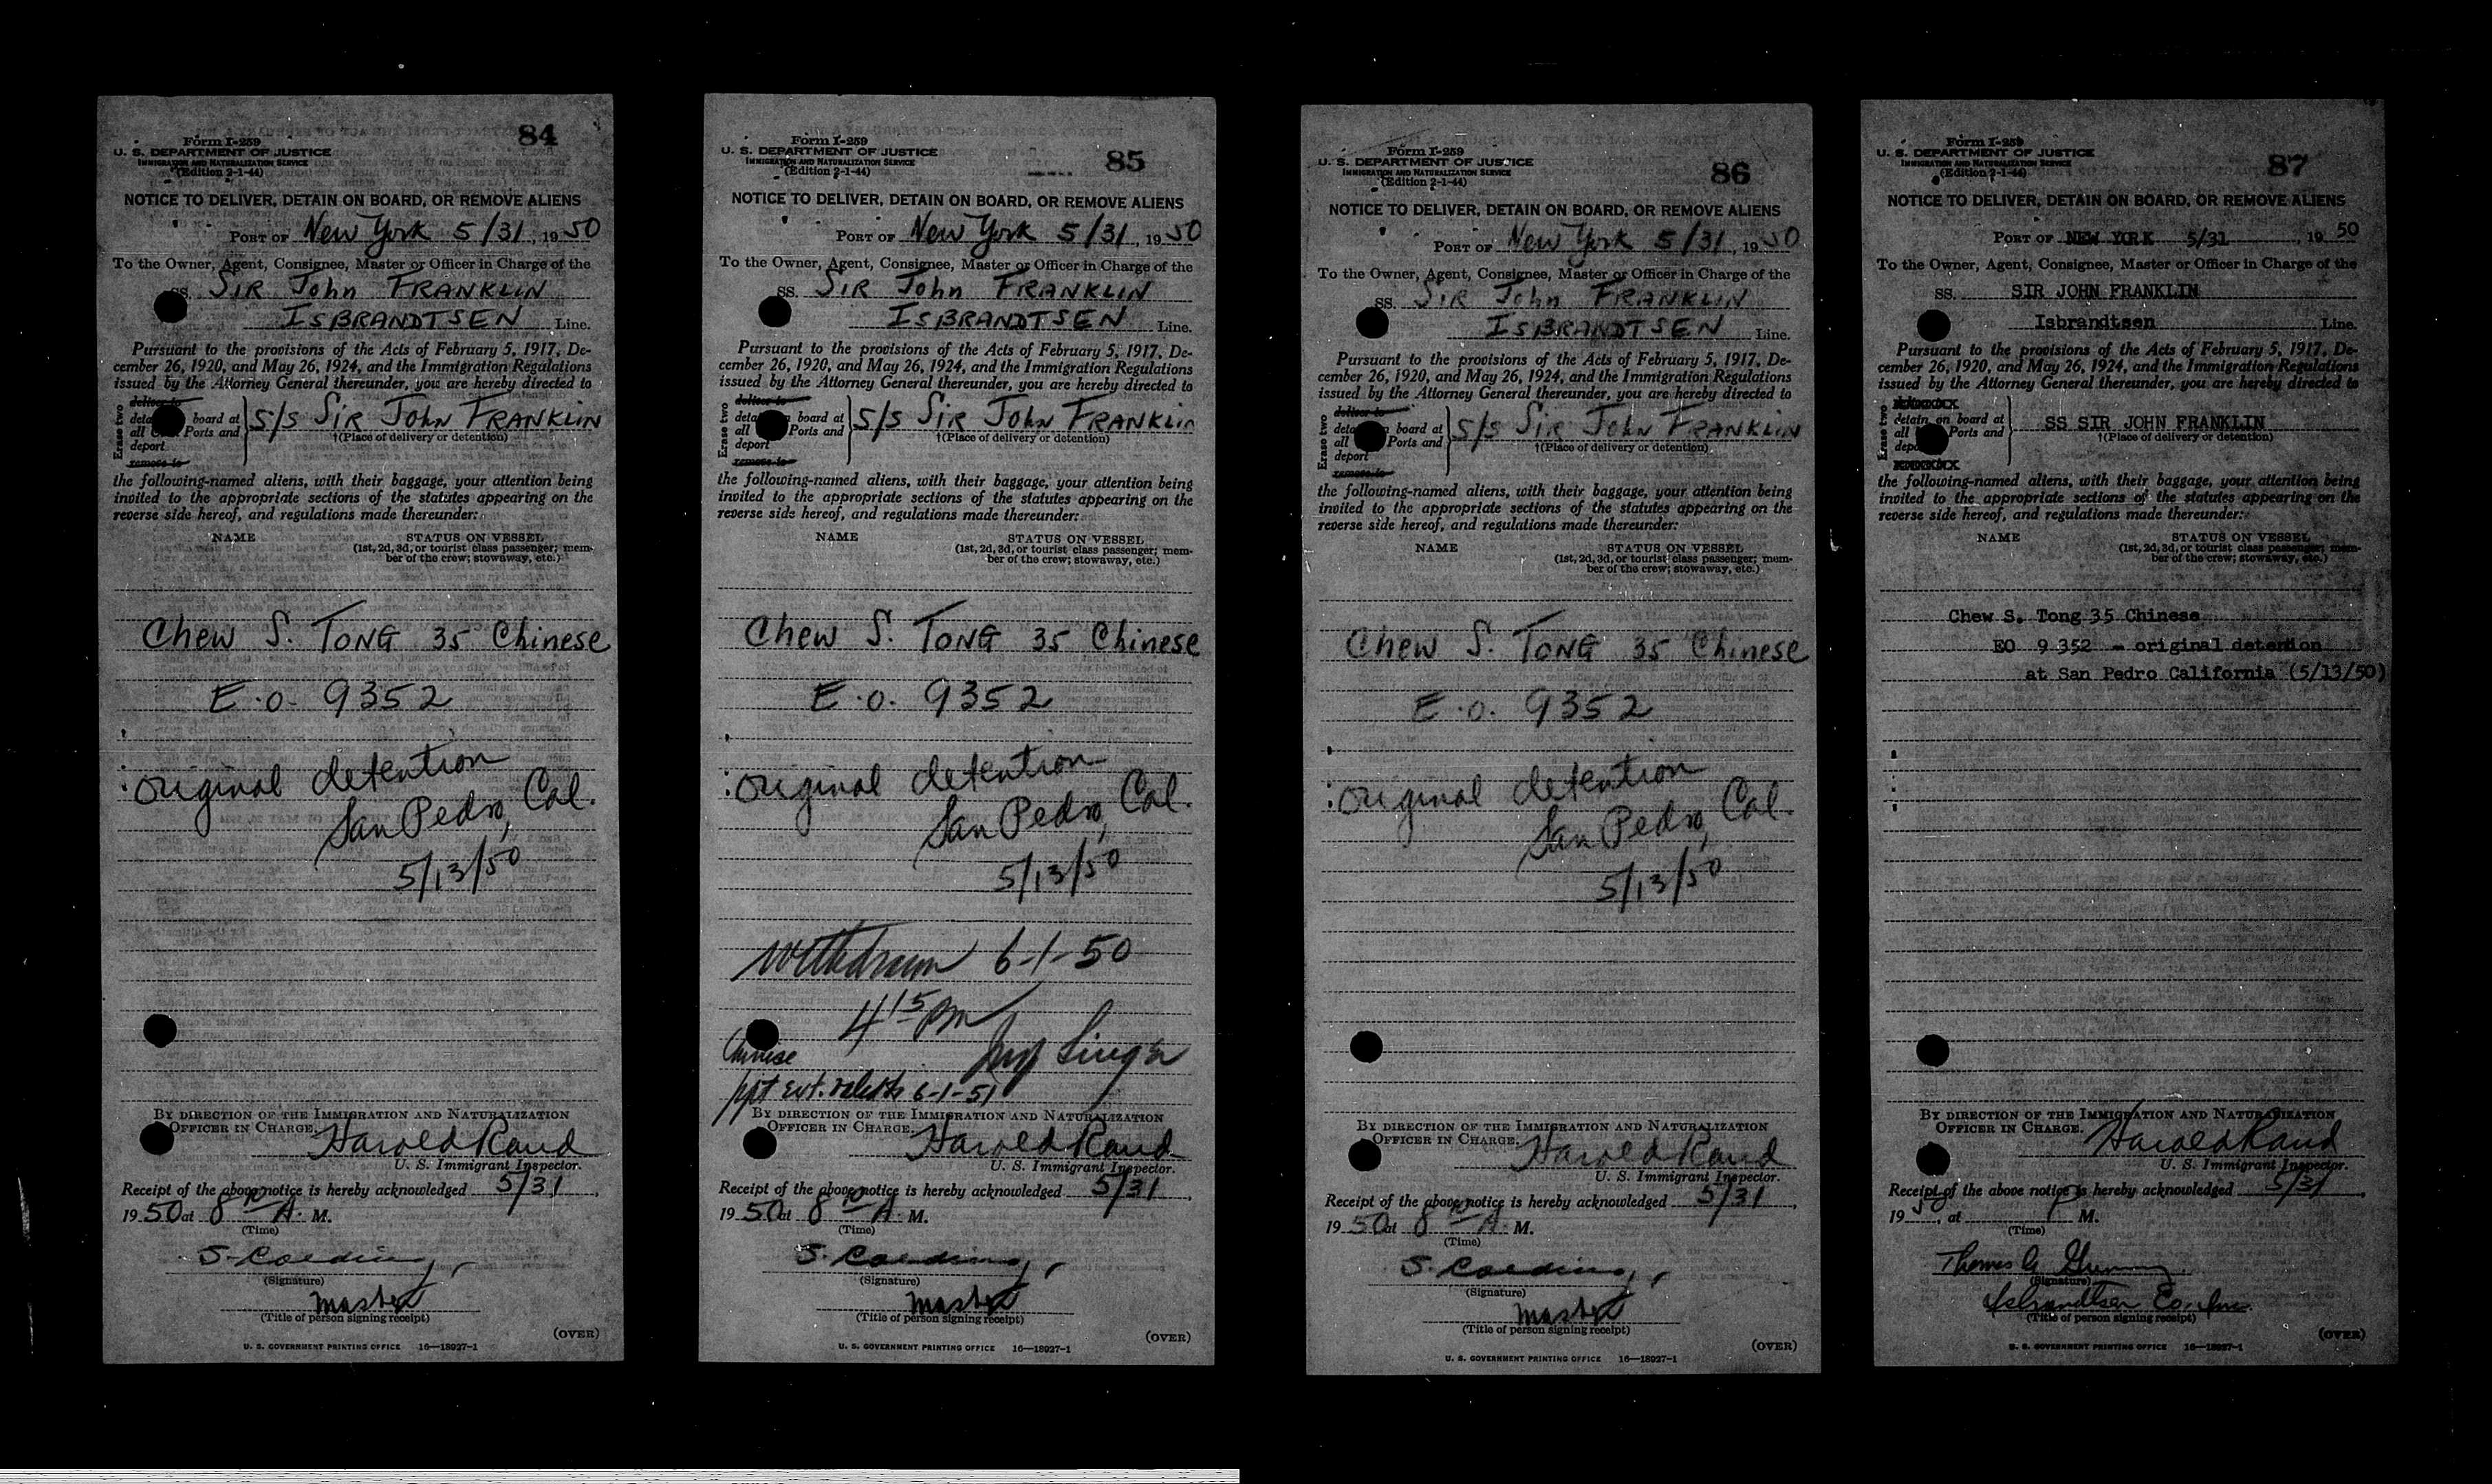 84
Form I-259
U. S. DEPARTMENT OF JUSTICE
IMMIGRATION AND NATURALIZATION SERVICE
(Edition 2-1-44)
NOTICE TO DELIVER, DETAIN ON BOARD, OR REMOVE ALIENS
PORT OF New York 5/31, 1950
To the Owner, Agent, Consignee, Master or Officer in Charge of the
SS. SIR John FRANKLIN
ISBRANDTSEN Line.
Pursuant to the provisions of the Acts of February 5, 1917, De-
cember 26, 1920, and May 26, 1924, and the Immigration Regulations
issued by the Attorney General thereunder, you are hereby directed to
Erase two
deliver to
board at
all Ports and
deport
remove to
S/S SIR John FRANKLIN
†(Place of delivery or detention)
the following-named aliens, with their baggage, your attention being
invited to the appropriate sections of the statutes appearing on the
reverse side hereof, and regulations made thereunder:
NAME STATUS ON VESSEL
(1st, 2d, 3d, or tourist class passenger; mem-
ber of the crew; stowaway, etc.)
Chew S. TONG 35 Chinese
E.O. 9352
original detention
San Pedro, Cal.
5/13/50
BY DIRECTION OF THE IMMIGRATION AND NATURALIZATION
OFFICER IN CHARGE.
Harold Rand
U. S. Immigrant Inspector.
Receipt of the above notice is hereby acknowledged 5/31,
1950 at 8 A. M.
(Time)
(Signature)
Master
(Title of person signing receipt)
(OVER)
U. S. GOVERNMENT PRINTING OFFICE 16—18927-1
85
Form I-259
U. S. DEPARTMENT OF JUSTICE
IMMIGRATION AND NATURALIZATION SERVICE
(Edition 2-1-44)
NOTICE TO DELIVER, DETAIN ON BOARD, OR REMOVE ALIENS
PORT OF New York 5/31, 1950
To the Owner, Agent, Consignee, Master or Officer in Charge of the
SS. SIR John FRANKLIN
ISBRANDTSEN Line.
Pursuant to the provisions of the Acts of February 5, 1917, De-
cember 26, 1920, and May 26, 1924, and the Immigration Regulations
issued by the Attorney General thereunder, you are hereby directed to
Erase two
deliver to
board at
all Ports and
deport
remove to
S/S SIR John FRANKLIN
†(Place of delivery or detention)
the following-named aliens, with their baggage, your attention being
invited to the appropriate sections of the statutes appearing on the
reverse side hereof, and regulations made thereunder:
NAME STATUS ON VESSEL
(1st, 2d, 3d, or tourist class passenger; mem-
ber of the crew; stowaway, etc.)
Chew S. TONG 35 Chinese
E.O. 9352
original detention
San Pedro, Cal.
5/13/50
Withdrawn 6-1-50
4 15 pm
Chinese
ppt ext. 6-1-51
BY DIRECTION OF THE IMMIGRATION AND NATURALIZATION
OFFICER IN CHARGE.
Harold Rand
U. S. Immigrant Inspector.
Receipt of the above notice is hereby acknowledged 5/31,
1950 at 8 A. M.
(Time)
(Signature)
Master
(Title of person signing receipt)
(OVER)
U. S. GOVERNMENT PRINTING OFFICE 16—18927-1
86
Form I-259
U. S. DEPARTMENT OF JUSTICE
IMMIGRATION AND NATURALIZATION SERVICE
(Edition 2-1-44)
NOTICE TO DELIVER, DETAIN ON BOARD, OR REMOVE ALIENS
PORT OF New York 5/31, 1950
To the Owner, Agent, Consignee, Master or Officer in Charge of the
SS. SIR John FRANKLIN
ISBRANDTSEN Line.
Pursuant to the provisions of the Acts of February 5, 1917, De-
cember 26, 1920, and May 26, 1924, and the Immigration Regulations
issued by the Attorney General thereunder, you are hereby directed to
Erase two
deliver to
board at
all Ports and
deport
remove to
S/S SIR John FRANKLIN
†(Place of delivery or detention)
the following-named aliens, with their baggage, your attention being
invited to the appropriate sections of the statutes appearing on the
reverse side hereof, and regulations made thereunder:
NAME STATUS ON VESSEL
(1st, 2d, 3d, or tourist class passenger; mem-
ber of the crew; stowaway, etc.)
Chew S. TONG 35 Chinese
E.O. 9352
original detention
San Pedro, Cal.
5/13/50
BY DIRECTION OF THE IMMIGRATION AND NATURALIZATION
OFFICER IN CHARGE.
Harold Rand
U. S. Immigrant Inspector.
Receipt of the above notice is hereby acknowledged 5/31,
1950 at 8 A. M.
(Time)
(Signature)
Master
(Title of person signing receipt)
(OVER)
U. S. GOVERNMENT PRINTING OFFICE 16—18927-1
87
Form I-259
U. S. DEPARTMENT OF JUSTICE
IMMIGRATION AND NATURALIZATION SERVICE
(Edition 2-1-44)
NOTICE TO DELIVER, DETAIN ON BOARD, OR REMOVE ALIENS
PORT OF NEW YORK 5/31, 19 50
To the Owner, Agent, Consignee, Master or Officer in Charge of the
SS. SIR JOHN FRANKLIN
Isbrandtsen Line.
Pursuant to the provisions of the Acts of February 5, 1917, De-
cember 26, 1920, and May 26, 1924, and the Immigration Regulations
issued by the Attorney General thereunder, you are hereby directed to
Erase two
detain on board at
all Ports and
SS SIR JOHN FRANKLIN
†(Place of delivery or detention)
the following-named aliens, with their baggage, your attention being
invited to the appropriate sections of the statutes appearing on the
reverse side hereof, and regulations made thereunder:
NAME STATUS ON VESSEL
(1st, 2d, 3d, or tourist class passenger; mem-
ber of the crew; stowaway, etc.)
Chew S. Tong 35 Chinese
EO 9 352 - original detention
at San Pedro California (5/13/50)
BY DIRECTION OF THE IMMIGRATION AND NATURALIZATION
OFFICER IN CHARGE.
Harold Rand
U. S. Immigrant Inspector.
Receipt of the above notice is hereby acknowledged 5/31,
1950, at M.
(Time)
Thomas G
(Signature)
Isbrandtsen Co. Inc.
(Title of person signing receipt)
(OVER)
U. S. GOVERNMENT PRINTING OFFICE 16—18927-1